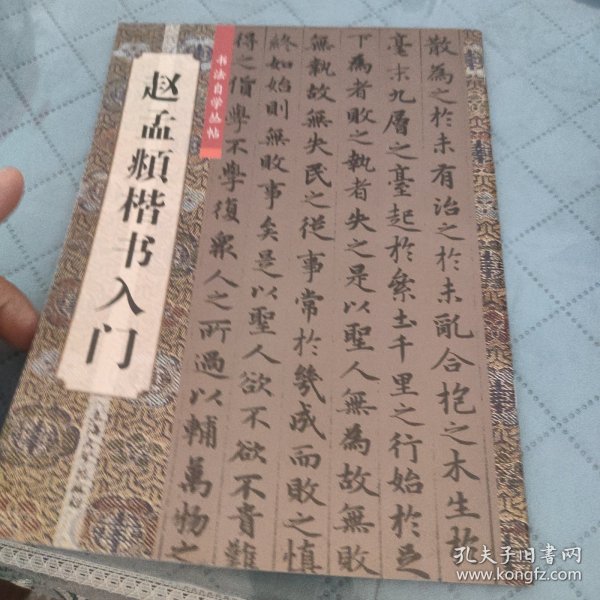 赵孟頫楷书入门
书法自学丛帖
散為之於未有治之於未亂合抱之木生於
毫末九層之臺起於絫土千里之行始於足
下為者敗之執者失之是以聖人無為故無敗
無執故無失民之從事常於幾成而敗之慎
終如始則無敗事矣是以聖人欲不欲不貴難
得之貨學不學復衆人之所過以輔萬物之
孔夫子旧书网
www.kongfz.com